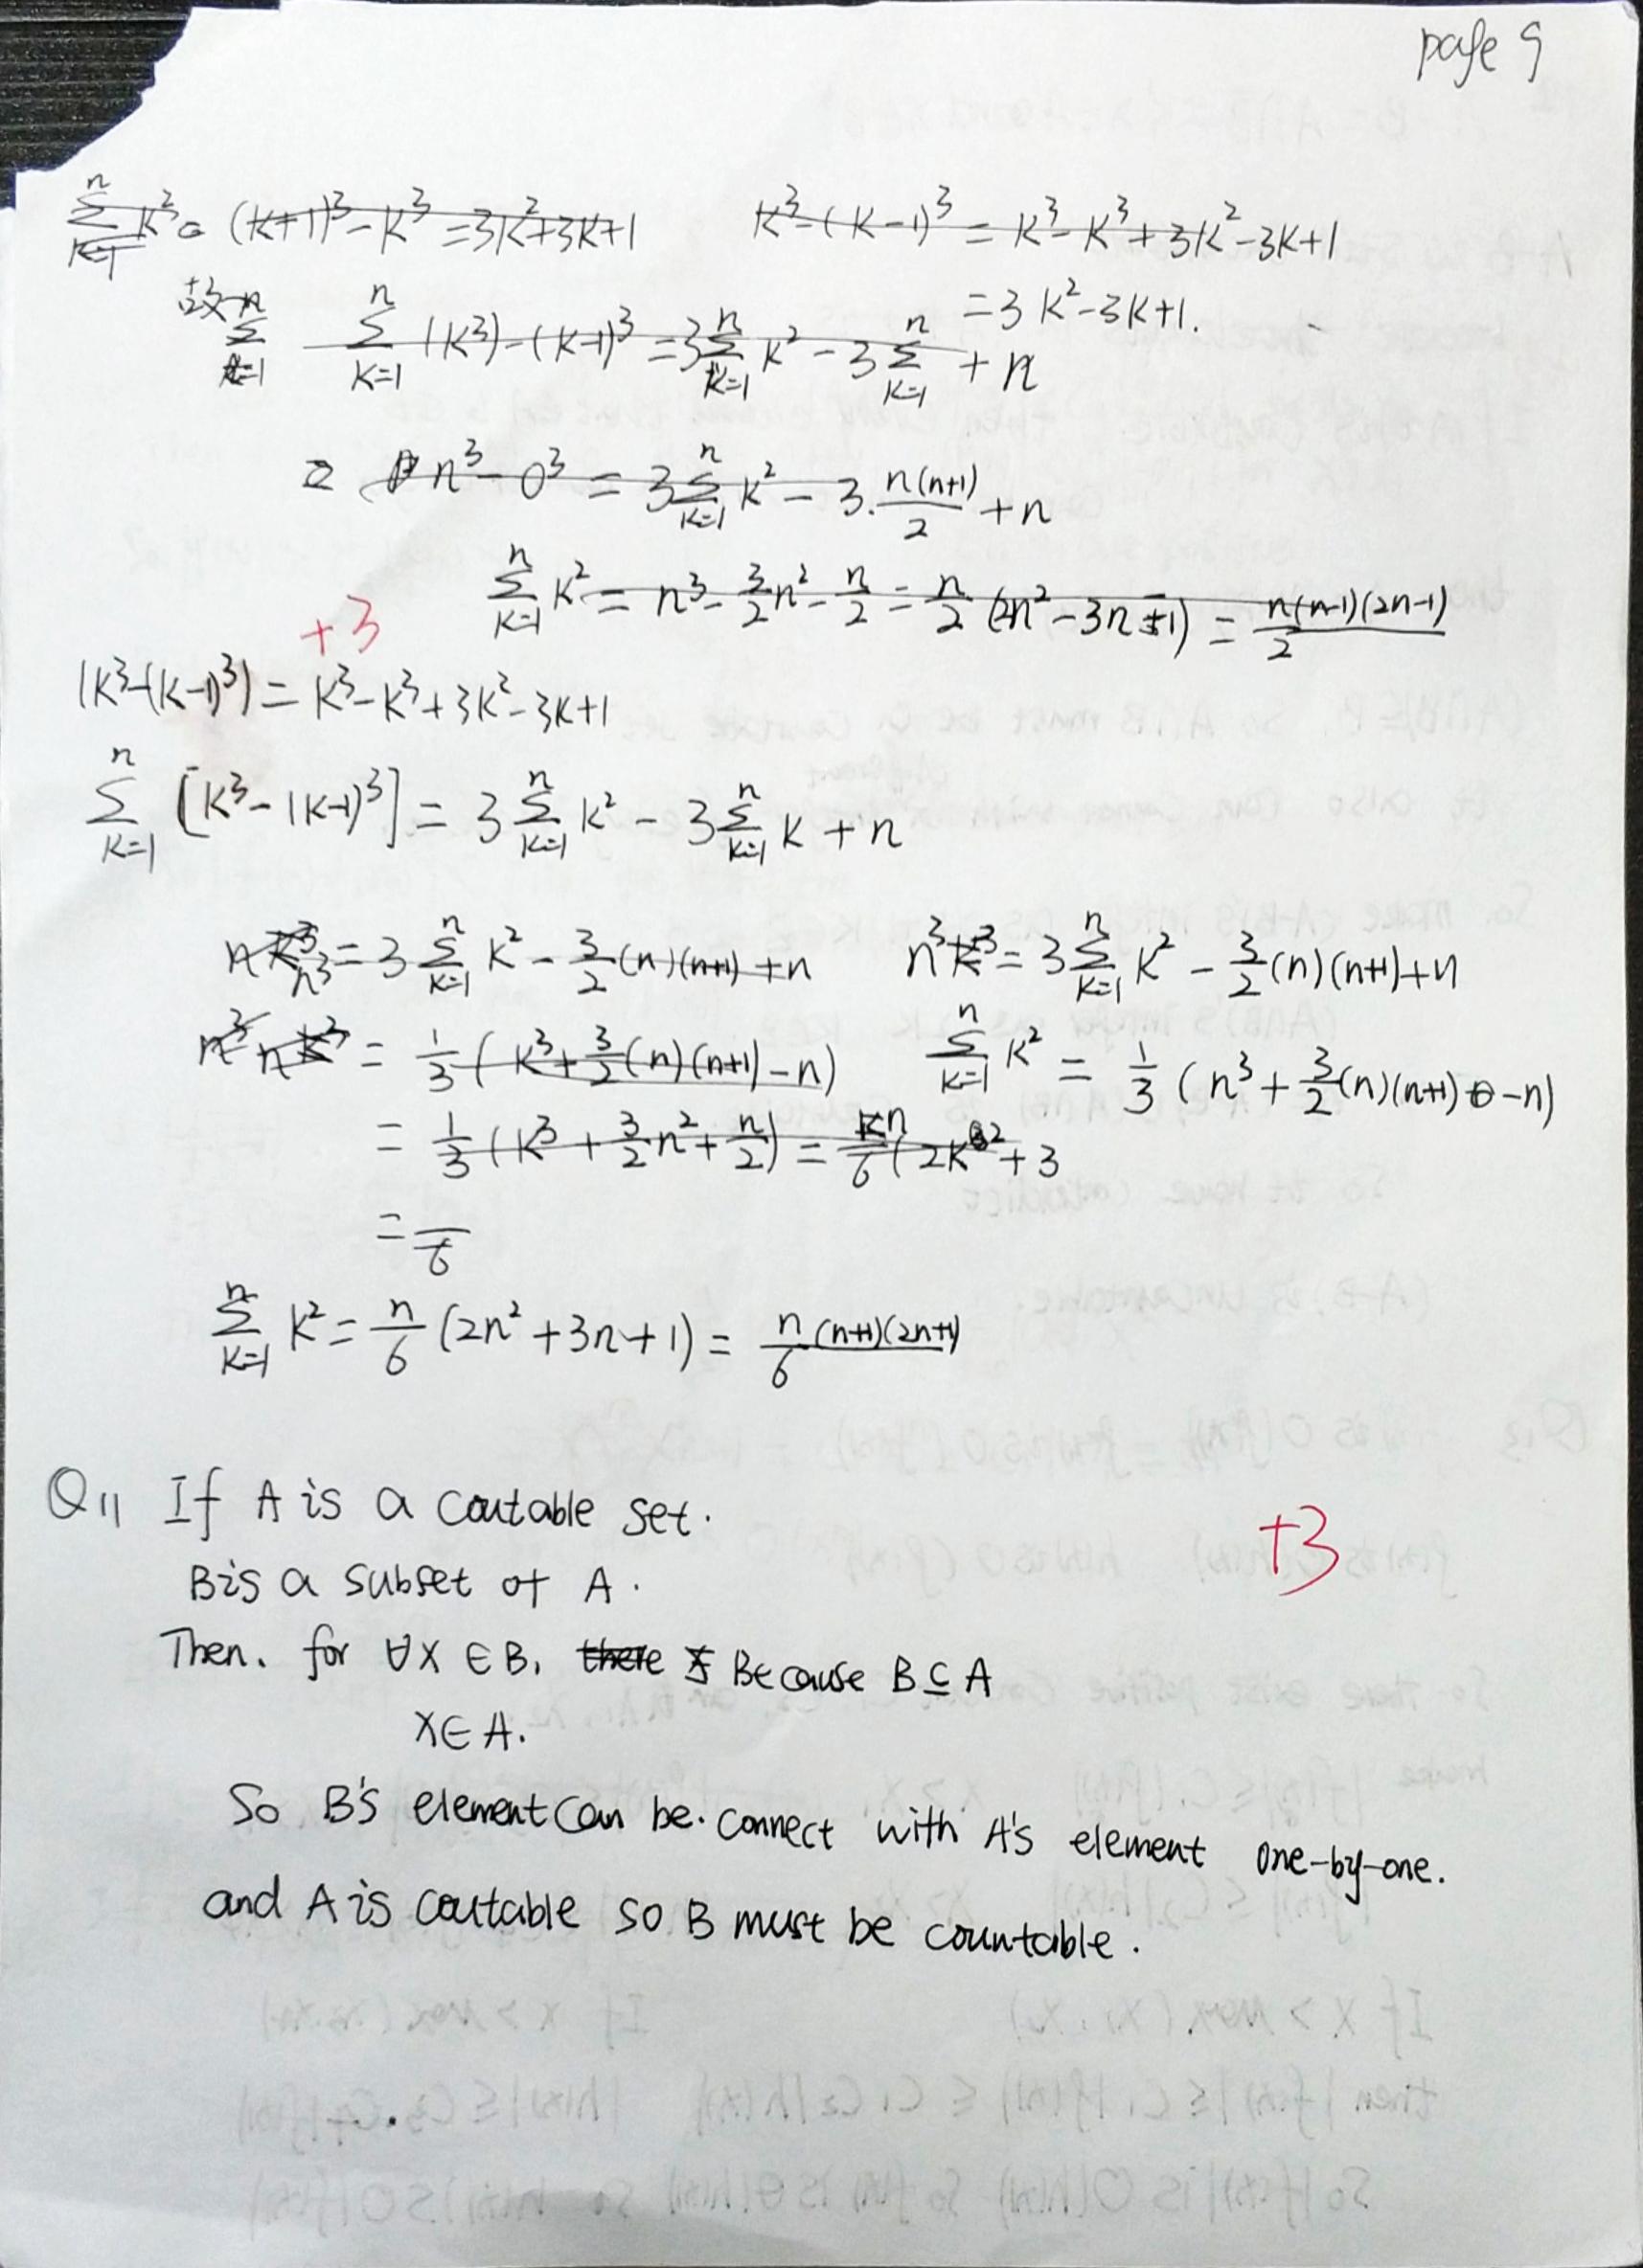 page 9
∑_{k=1}^{n} k² = (k+1)³ - k³ = 3k²+3k+1    k³-(k-1)³ = k³-k³+3k²-3k+1
= 3k²-3k+1.
∑_{k=1}^{n} ∑_{k=1}^{n} (k³)-(k-1)³ = 3∑_{k=1}^{n} k² - 3∑_{k=1}^{n} + n
n³-0³ = 3∑_{k=1}^{n} k² - 3·n(n+1)/2 + n
∑_{k=1}^{n} k² = n³ - 3/2 n² - n/2 = n/2 (2n²-3n+1) = n(n-1)(2n-1)/2
+3
(k³-(k-1)³) = k³-k³+3k²-3k+1
∑_{k=1}^{n} [k³-(k-1)³] = 3∑_{k=1}^{n} k² - 3∑_{k=1}^{n} k + n
n³ = 3∑_{k=1}^{n} k² - 3/2(n)(n+1)+n    n³ = 3∑_{k=1}^{n} k² - 3/2(n)(n+1)+n
= 1/3(k³+3/2(n)(n+1)-n)    ∑_{k=1}^{n} k² = 1/3(n³+3/2(n)(n+1)-n)
= 1/3(k³+3/2n²+n/2) = n/6(2k²+3
= /6
∑_{k=1}^{n} k² = n/6(2n²+3n+1) = n(n+1)(2n+1)/6
Q11 If A is a coutable set.
+3
B is a subset of A.
Then. for ∀x∈B, there Because B⊆A
x∈A.
So B's element can be. connect with A's element one-by-one.
and A is coutable so B must be countable.